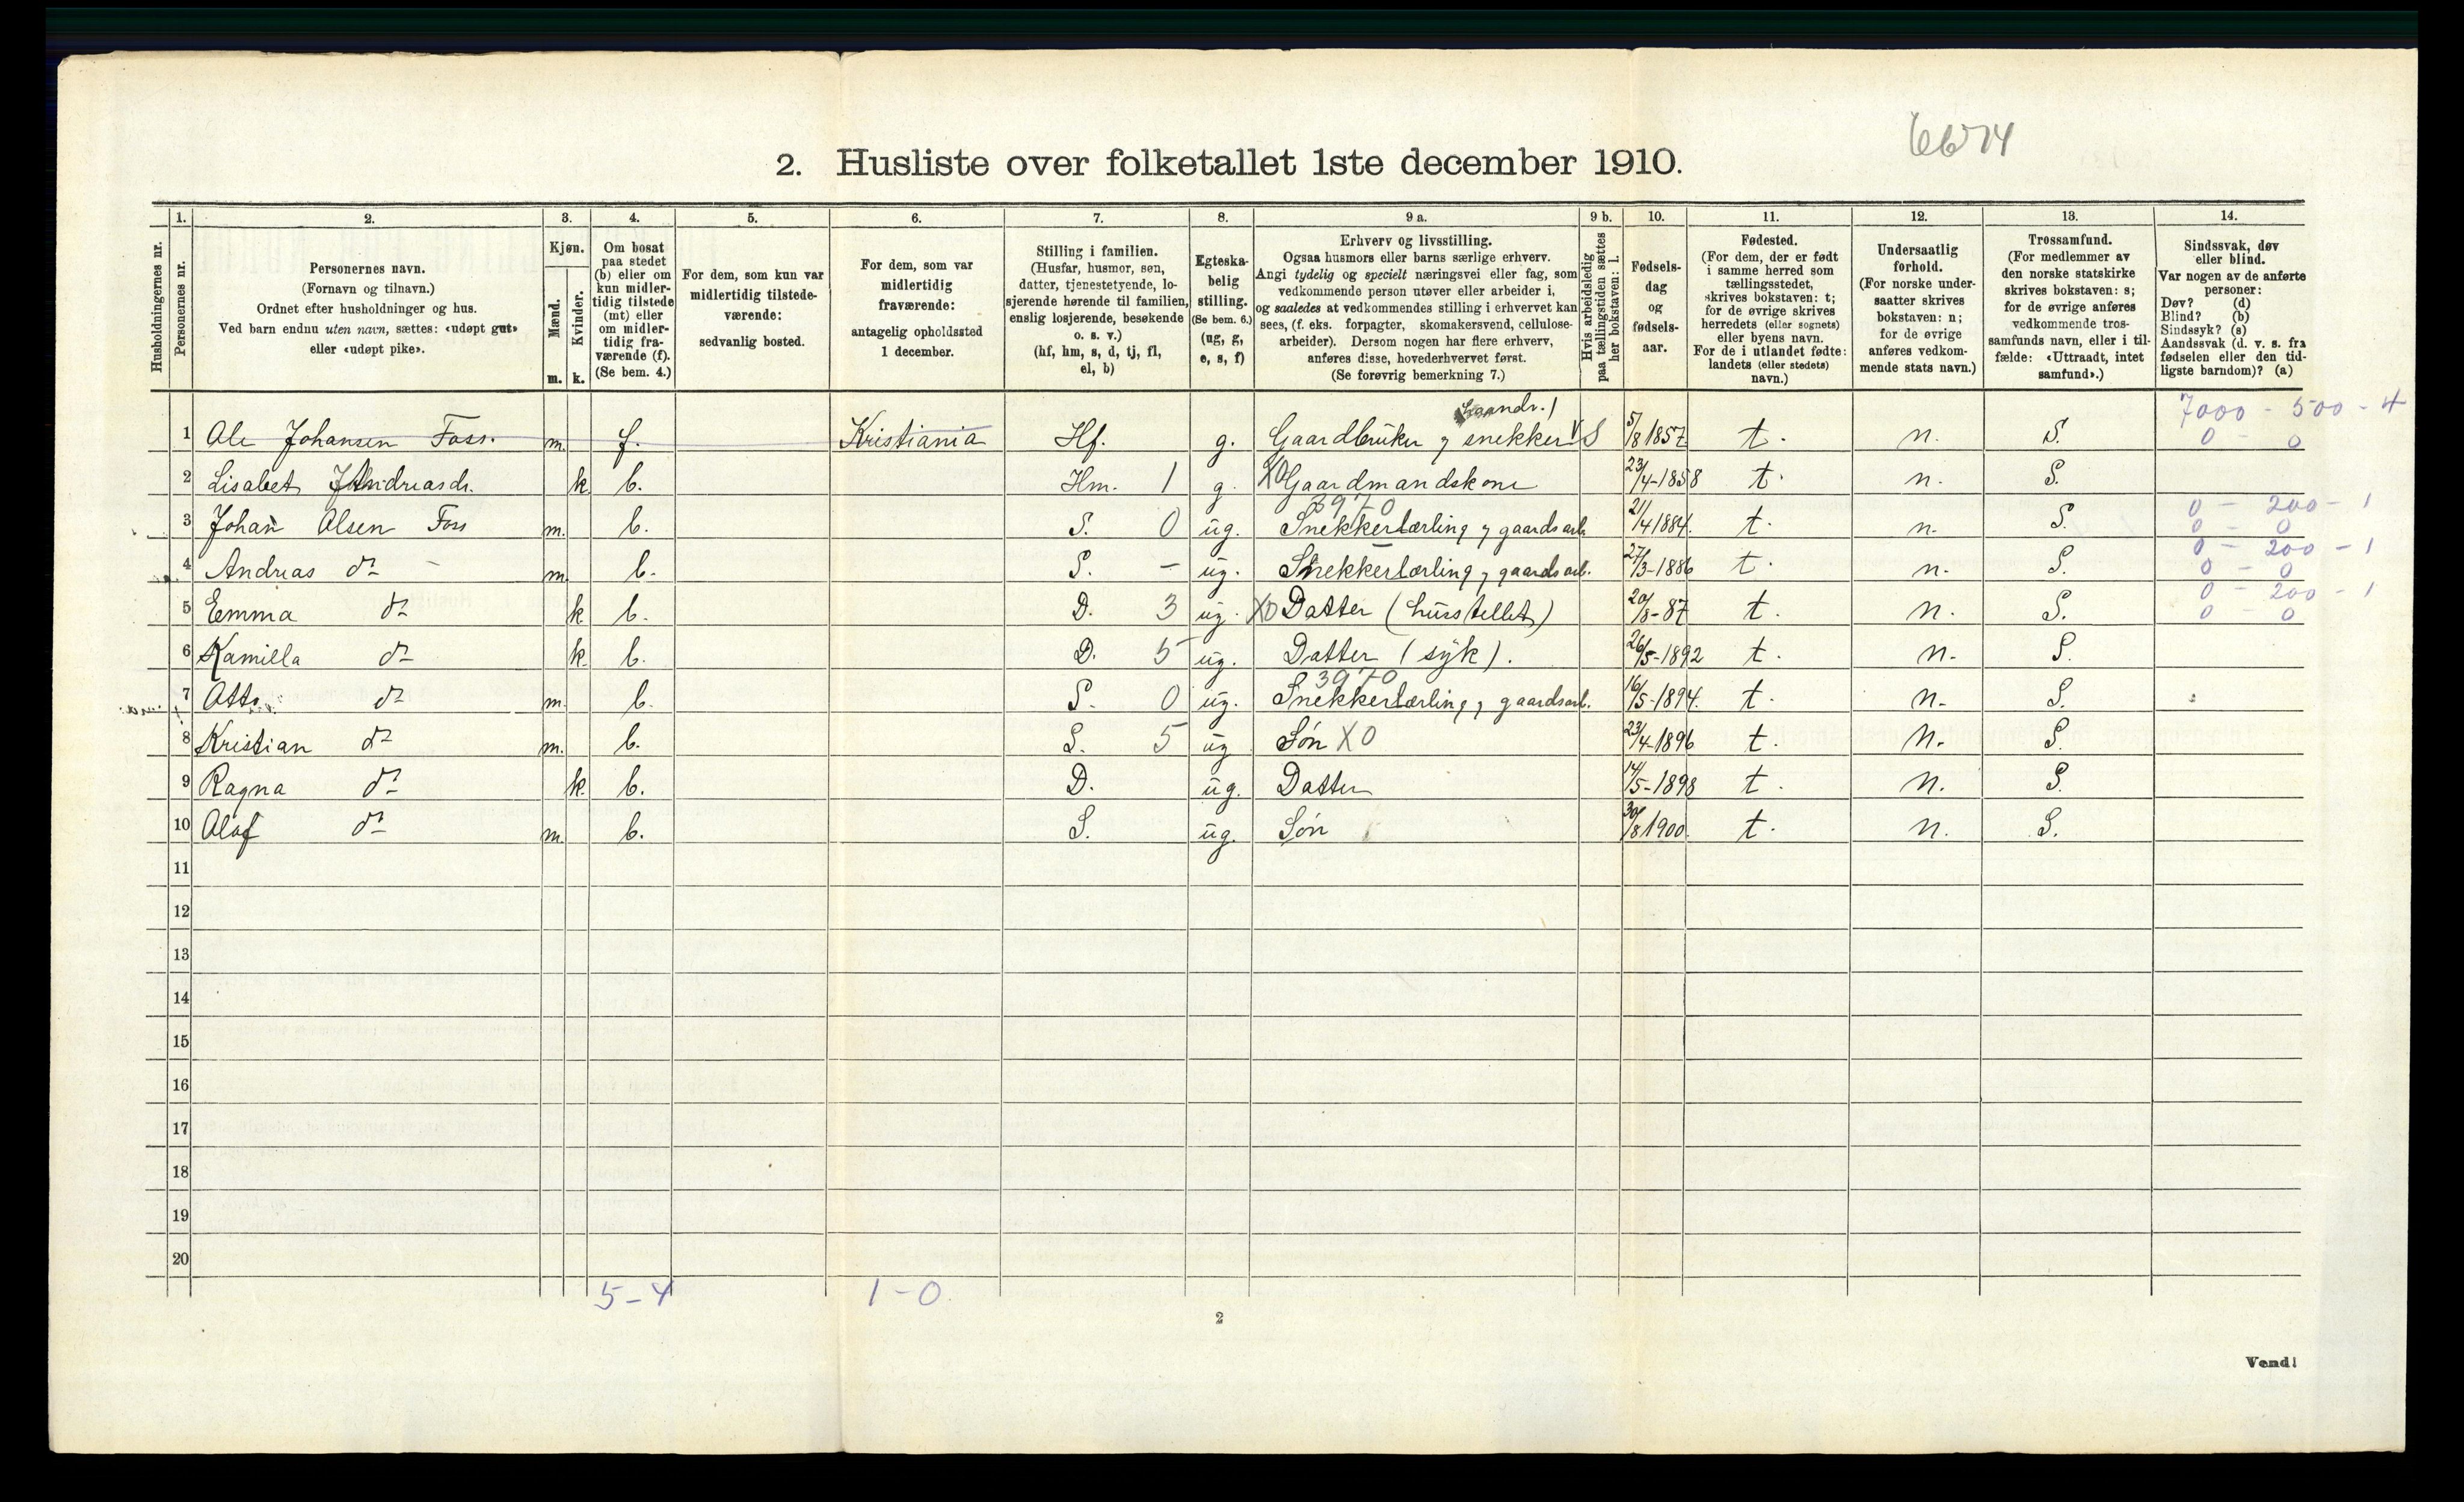 6674
2. Husliste over folketallet 1ste december 1910.
Husholdningernes nr.
1. Personernes nr.
2. Personernes navn.
(Fornavn og tilnavn.)
Ordnet efter husholdninger og hus.
Ved barn endnu uten navn, sættes: «udøpt gut»
eller «udøpt pike».
3. Kjøn.
Mænd. m.
Kvinder. k.
4. Om bosat
paa stedet
(b) eller om
kun midler-
tidig tilstede
(mt) eller
om midler-
tidig fra-
værende (f).
(Se bem. 4.)
5. For dem, som kun var
midlertidig tilstede-
værende:
sedvanlig bosted.
6. For dem, som var
midlertidig
fraværende:
antagelig opholdssted
1 december.
7. Stilling i familien.
(Husfar, husmor, søn,
datter, tjenestetyende, lo-
sjerende hørende til familien,
enslig losjerende, besøkende
o. s. v.)
(hf, hm, s, d, tj, fl,
el, b)
8. Egteska-
belig
stilling.
(Se bem. 6.)
(ug, g,
e, s, f)
9 a. Erhverv og livsstilling.
Ogsaa husmors eller barns særlige erhverv.
Angi tydelig og specielt næringsvei eller fag, som
vedkommende person utøver eller arbeider i,
og saaledes at vedkommendes stilling i erhvervet kan
sees, (f. eks. forpagter, skomakersvend, cellulose-
arbeider). Dersom nogen har flere erhverv,
anføres disse, hovederhvervet først.
(Se forøvrig bemerkning 7.)
9 b. Hvis arbeidsledig
paa tællingstiden sættes
her bokstaven: l.
10. Fødsels-
dag
og
fødsels-
aar.
11. Fødested.
(For dem, der er født
i samme herred som
tællingsstedet,
skrives bokstaven: t;
for de øvrige skrives
herredets (eller sognets)
eller byens navn.
For de i utlandet fødte:
landets (eller stedets)
navn.)
12. Undersaatlig
forhold.
(For norske under-
saatter skrives
bokstaven: n;
for de øvrige
anføres vedkom-
mende stats navn.)
13. Trossamfund.
(For medlemmer av
den norske statskirke
skrives bokstaven: s;
for de øvrige anføres
vedkommende tros-
samfunds navn, eller i til-
fælde: «Uttraadt, intet
samfund».)
14. Sindssvak, døv
eller blind.
Var nogen av de anførte
personer:
Døv? (d)
Blind? (b)
Sindssyk? (s)
Aandssvak (d. v. s. fra
fødselen eller den tid-
ligste barndom)? (a)
7000 - 500 - 4
1 Ole Johansen Foss. m. f. Kristiania Hf. g. Gaardbruker og snekker S 5/8 1857 t. n. S. 0 - 0
2 Lisabet Andreasdr. k b. Hm. 1 g. X0 Gaardmandskone 23/4-1858 t. n. S.
3970 0 - 200 - 1
3 Johan Olsen Foss m. b. S. 0 ug. Snekkerlærling og gaardsarb. 21/4 1884. t. n. S. 0 - 0
0 - 200 - 1
4 Andreas do - m b. S. - ug. Snekkerlærling og gaardsarb. 27/3-1886 t. n. S. 0 - 0
0 - 200 - 1
5 Emma do k b. D. 3 ug. X0 Datter (husstellet) 20/8-87 t. n. S. 0 - 0
6 Kamilla do k. b. D. 5 ug. Datter (syk). 26/5-1892 t. n. S.
3970
7 Otto do m. b. S. 0 ug. Snekkerlærling og gaardsarb. 16/5-1894. t. n. S.
8 Kristian do m. b. S. 5 ug Søn X0 23/4-1896 t. n. S.
9 Ragna do k. b. D. ug. Datter 14/5-1898 t. n. S.
10 Olaf do m. b. S. ug. Søn 30/8 1900. t. n. S.
11
12
13
14
15
16
17
18
19
20
5 - 4 1 - 0
2
Vend!